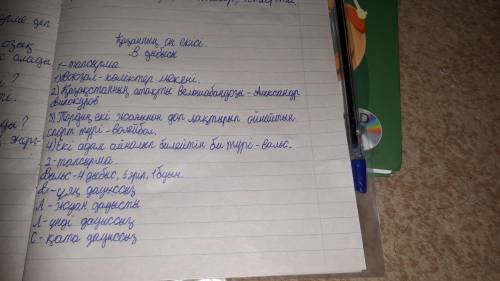 озық
с алады
?
ды?
жарт-
Қазанның он екісі
В дыбысы
1-тапсырма
1)Вокзал-көліктер мекені.
2) Қазақстанның атақты велошабандозы-Александр
Винокуров
3) Тордың екі жағынан доп лақтырып ойнайтын
спорт түрі-волейбол.
4) Екі адам айналып билейтін би түрі-вальс.
2-тапсырма.
Вальс-4 дыбыс, 5 әріп, 1 буын.
В-ұяң дауыссыз
А-жуан дауысты
Л-үнді дауыссыз
С-қатаң дауыссыз